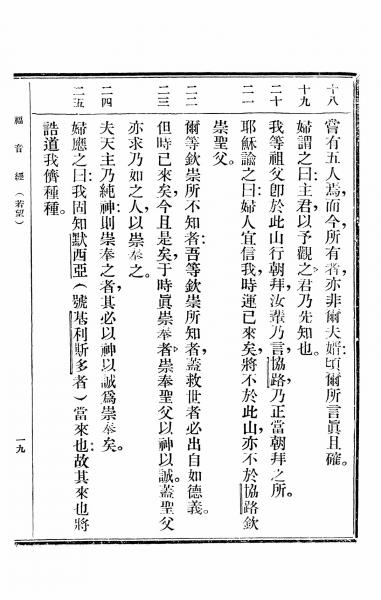 十八 嘗有五人焉，而今所有者，亦非爾夫婿：頃爾所言眞且確。
十九 婦謂之曰：主君，以予觀之，君乃先知也。
二十 我等祖父卽於此山行朝拜，汝輩乃言，協路乃正當朝拜之所。
二一 耶穌諭之曰：婦人，宜信我，時運已來矣，將不於此山，亦不於協路，欽
崇聖父。
二二 爾等欽崇所不知者：吾等欽崇所知者，蓋救世者必出自如德義。
二三 但時已來矣，今且是矣，于時眞崇奉者，崇奉聖父以神以誠。蓋聖父
亦求乃如之人，以崇奉之。
二四 夫天主乃純神：則崇奉之者，其必以神以誠爲崇奉矣。
二五 婦應之曰：我固知默西亞（號基利斯多者）當來也：故其來也將
誥道我儕種種。
福音經（若望）
一九